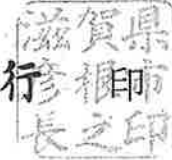 滋賀県
彦根市
長之印
行 印